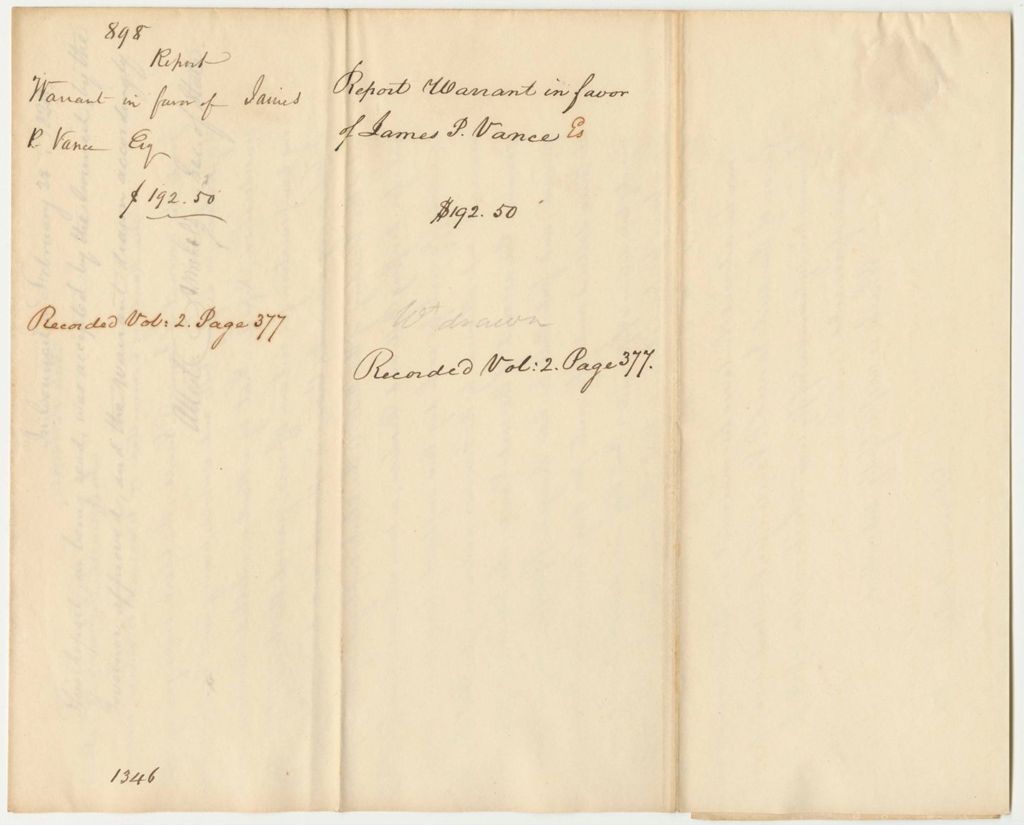 898
Report
Warrant in favor of James
P. Vance Esq
$192.50
Recorded Vol: 2. Page 377
1346
Report Warrant in favor
of James P. Vance Es
$192.50
Wt drawn
Recorded Vol: 2. Page 377.